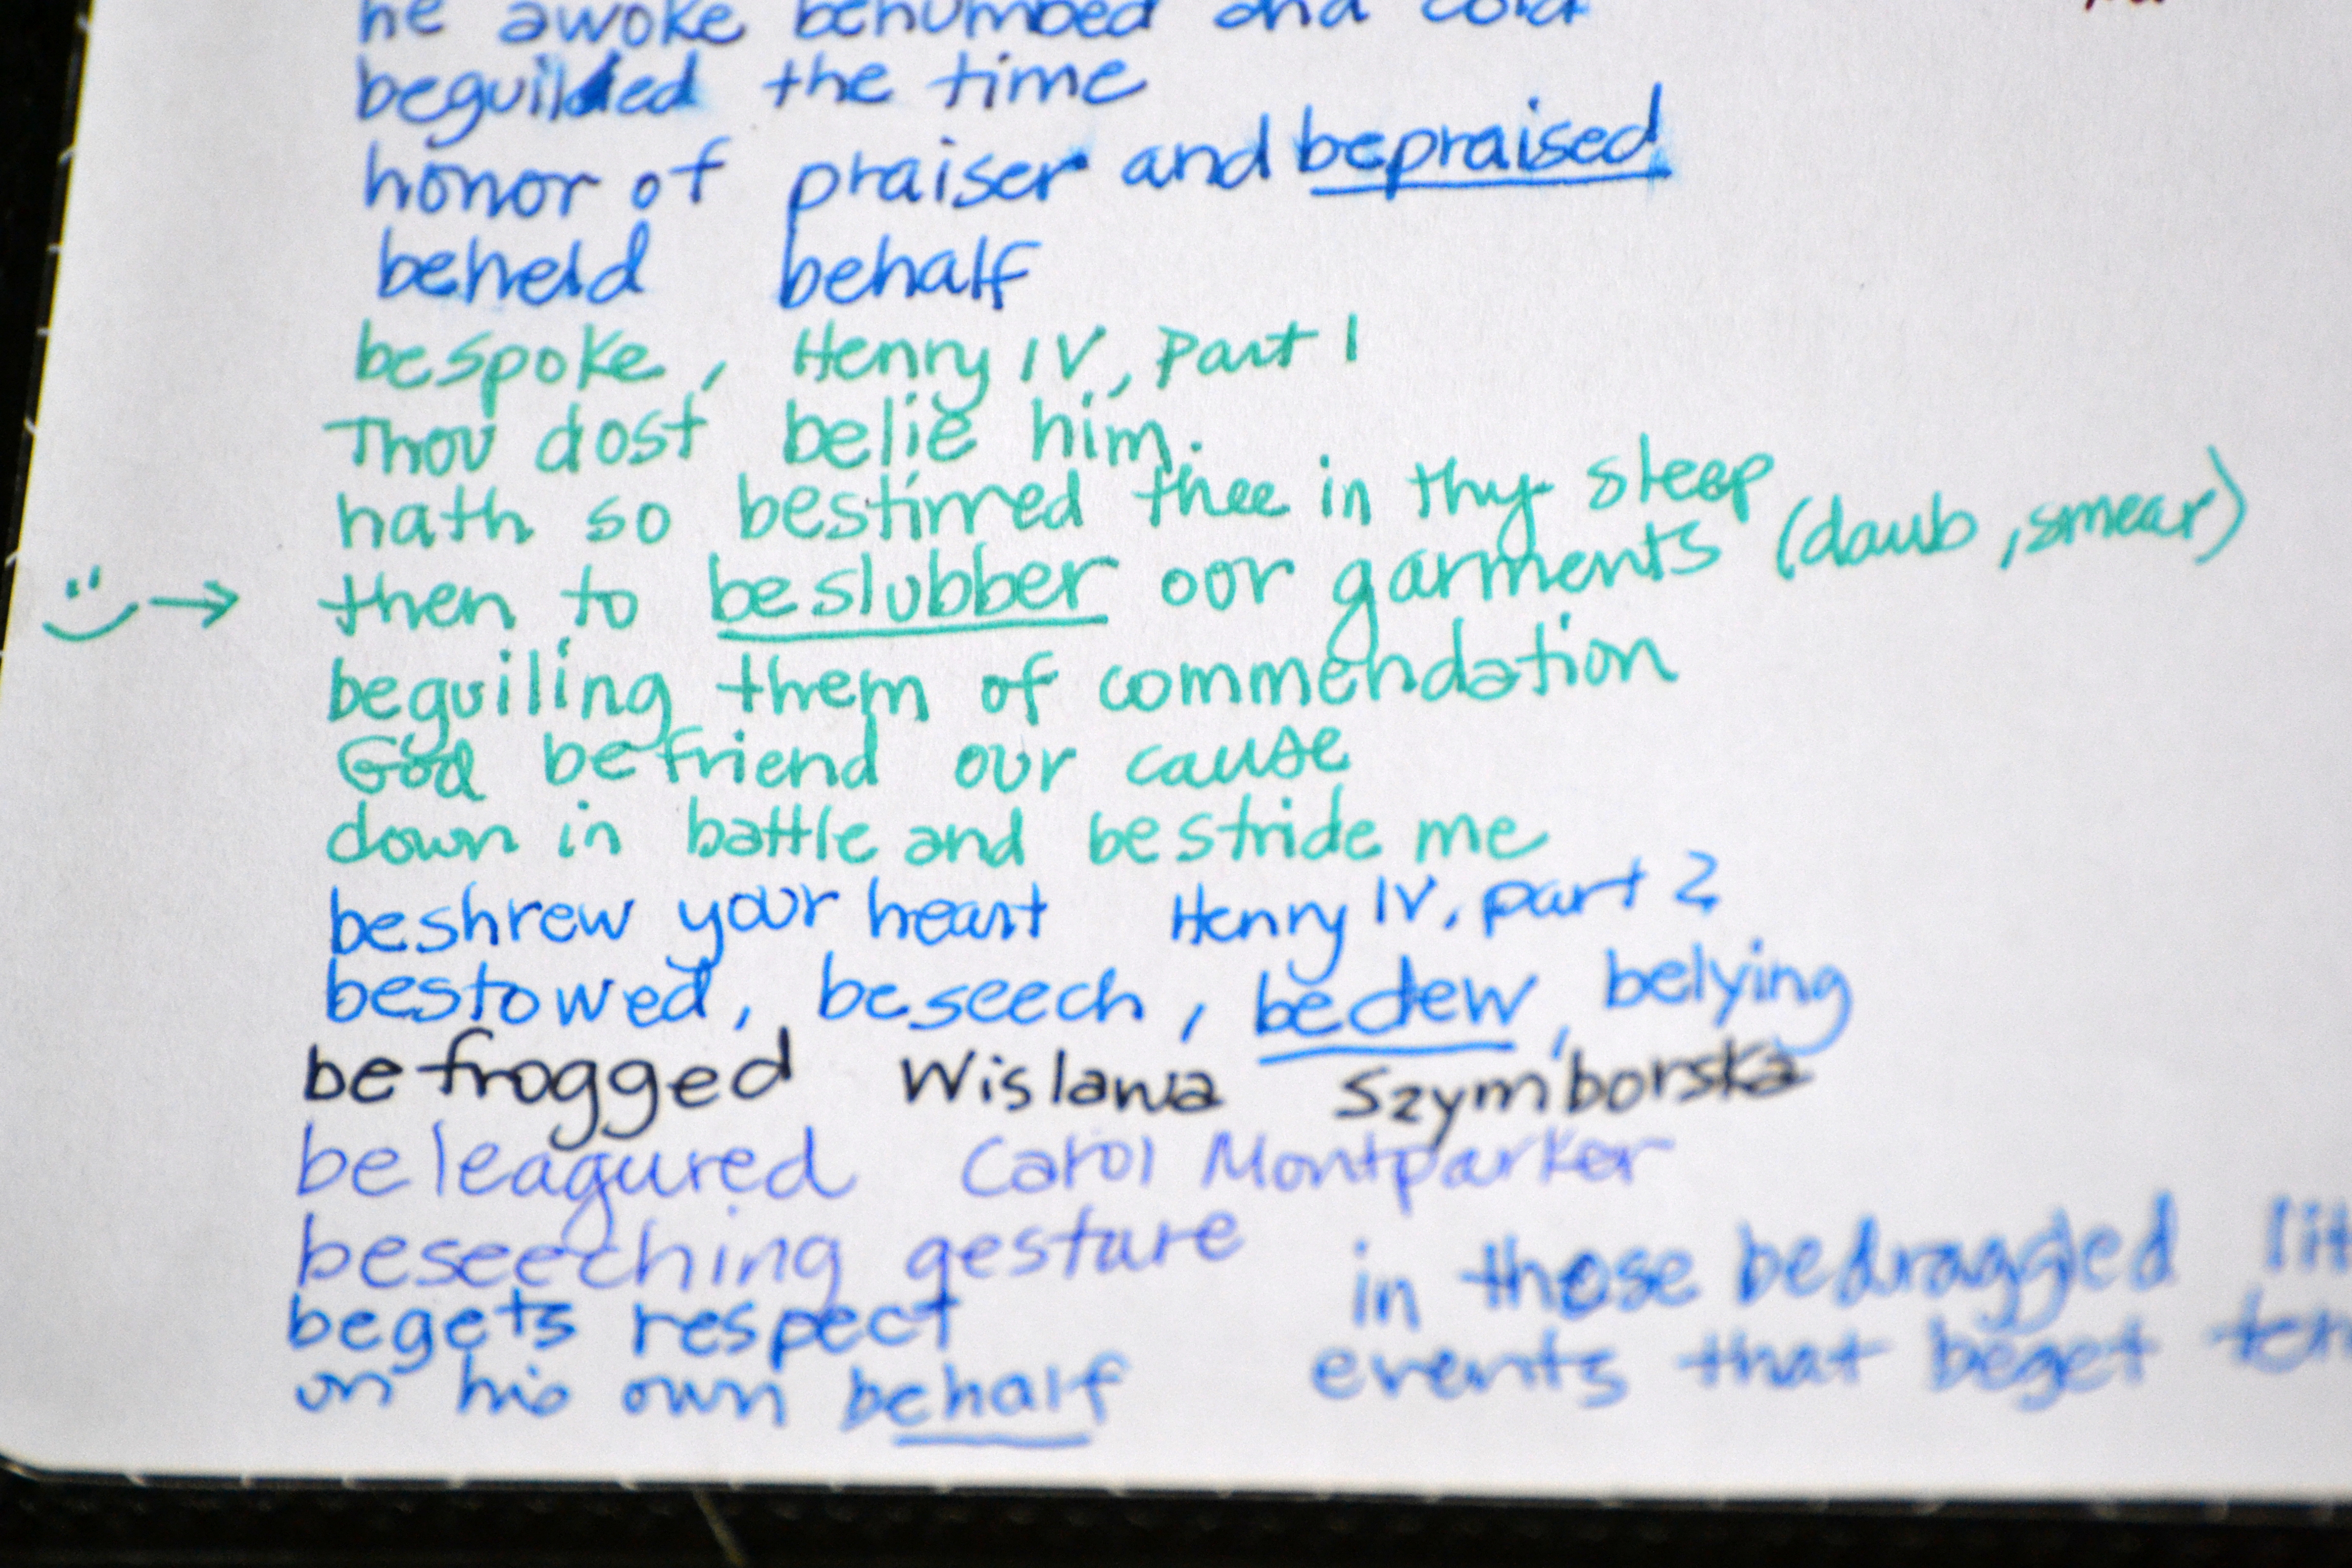 he awoke benumbed and cold
beguiled the time
honor of praiser and bepraised
beheld behalf
bespoke, Henry IV, Part 1
Thou dost belie him.
hath so bestirred thee in thy sleep
then to beslubber our garments (daub, smear)
beguiling them of commendation
God befriend our cause
down in battle and bestride me
beshrew your heart Henry IV, part 2
bestowed, beseech, bedew, belying
befrogged Wislawa Szymborska
beleagured Carol Montparker
beseeching gesture
in those bedragged lit
begets respect
events that beget ten
on his own behalf